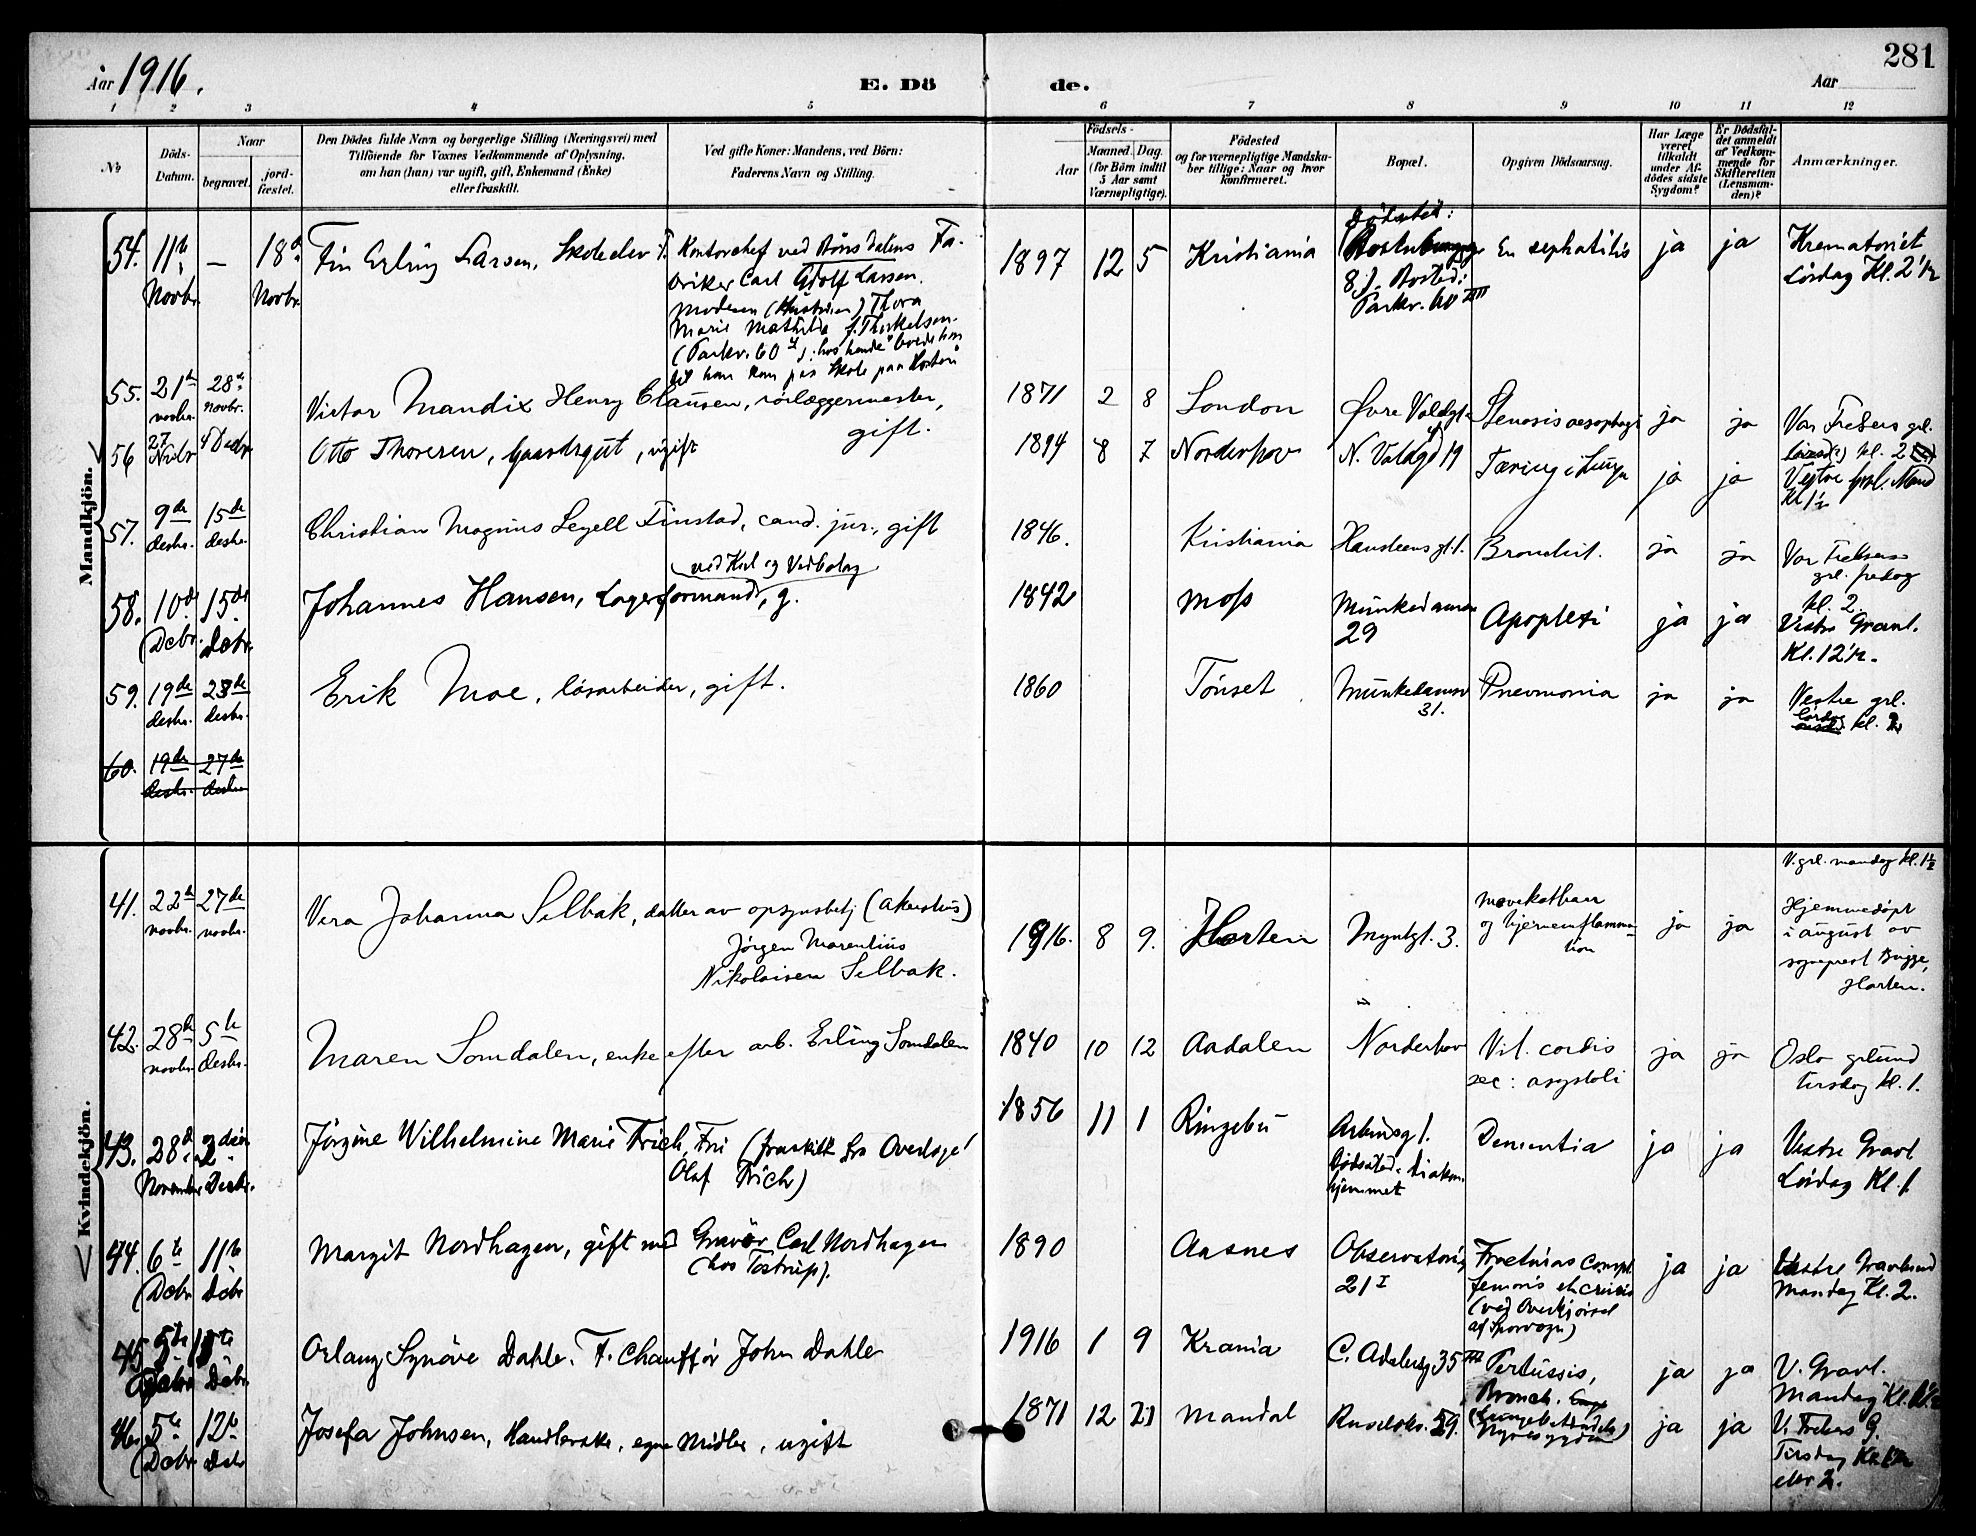 281
Aar 1916.
E. Dö
de.
Aar
1 2 3 4 5 6 7 8 9 10 11 12
No
Döds-Datum.
Naar
begravet.
jord-fæstet.
Den Dödes fulde Navn og borgerlige Stilling (Næringsvei) med
Tilföiende for Voxnes Vedkommende af Oplysning,
om han (hun) var ugift, gift, Enkemand (Enke)
eller fraskilt.
Ved gifte Koner: Mandens, ved Börn:
Faderens Navn og Stilling.
Födsels-
Aar
Maaned. Dag.
(for Börn indtil
5 Aar samt
Værnepligtige).
Födested
og for værnepligtige Mandska-
ber tillige: Naar og hvor
konfirmeret.
Bopæl.
Opgiven Dödsaarsag.
Har Læge
været
tilkaldt
under Af-
dödes sidste
Sygdom?
Er Dödsfal-
det anmeldt
af Vedkom-
mende for
Skifteretten
(Lensman-
den)?
Anmærkninger.
Mandkjön.
54. 11te Novbr. — 18de Novbr. Fin Erling Larsen, Skoleelev F. Kontorchef ved Fa-
briker Carl Adolf Larsen.
Moderen Thora
Marie Mathilde f. Thorkelsen.
(Parkv. 60
1897 12 5 Kristiania
8). Bosted:
Parkv. 60 III
ja ja Krematoriet
Lördag Kl. 2 1/2
55. 21de novbr. 28de novbr. Victor Mandix Henry Clausen, rörlæggermester,
gift.
1871 2 8 London Övre Voldgt. Stenosis oesophagi ja ja Vor Frelsers grl.
kl. 2
56 27 Novbr. 4 Decbr. Otto Thoresen, Gaardsgut, ugift
1894 8 7 Norderhov N. Voldgd 19 Tæring i Lunge ja ja Vestre grl. Mand
Kl 1 1/2
57. 9de desbr. 15de desbr. Christian Magnus Segell Finstad, cand. jur., gift
1846. Kristiania Hansteensgt. 1. Bronchit. ja ja Vor Frelsers
grl. fredag
kl. 2.
58. 10de Decbr. 15de Decbr. Johannes Hansen, Lagerformand, g.
ved Kul og Vedbolag
1842 Moss Munkedamsv
29
Apoplexi ja ja Vestre Gravl.
Kl. 12 1/2.
59. 19de desbr. 23de desbr. Erik Moe, lösarbeider, gift.
1860 Tönset Munkedamsv
31.
Pneumonia ja ja Vestre grl.
lördag kl. 2
60. 19de desbr. 27de desbr.
Kvindekjön.
V. grl. mandag kl. 1 1/2
41. 22de novbr. 27de novbr. Vera Johanna Selbak, datter av opsynsbetj (Akershus)
Jörgen Marentius
Nikolaisen Selbak.
1916. 8 9. Horten Myntgt. 3.
og hjerneinflamma-
tion
ja ja Hjemmedöpt
i august av
sognepræst Bugge,
Horten.
42. 28de novbr. 5te desbr. Maren Somdalen, enke efter arb. Erling Somdalen
1840 10 12 Aadalen Norderhov Vit. cordis
sec: asystoli
ja ja Oslo grlund
tirsdag kl. 1.
43. 28de November 2den Decbr. Jörgine Wilhelmine Marie Frich, Fru (fraskilt fra
Olaf Frich)
1856 11 1 Ringebu Arbinsgt 1.
Dödssted: Diakon-
hjemmet
Dementia ja ja Vestre Gravl
Lördag Kl. 1.
44. 6te Decbr 11te Decbr Margit Nordhagen, gift med Gravör Carl Nordhagen
(hos Tostrup).
1890 Aasnes Observatoriegt
21 I
Fracturas compl.
femoris et cruris
(ved Overkjörsel
af Sporvogn)
ja ja Vestre Gravlund
Mandag Kl. 2.
45 Decbr Decbr Orlaug Synöve Dahle. F. Chaufför John Dahle
1916 1 9 Krania C. Adelersg 35 III Pertussis,
Bronch.
ja ja V. Gravl.
Mandag Kl.
46. 5te Decbr 12te Decbr Josefa Johnsen, Handlerske, egne Midler, ugift
1871 12 21 Mandal Ruselökv. 59. ja ja V. Frelsers G.
Tirsdag Kl.
eller 2.